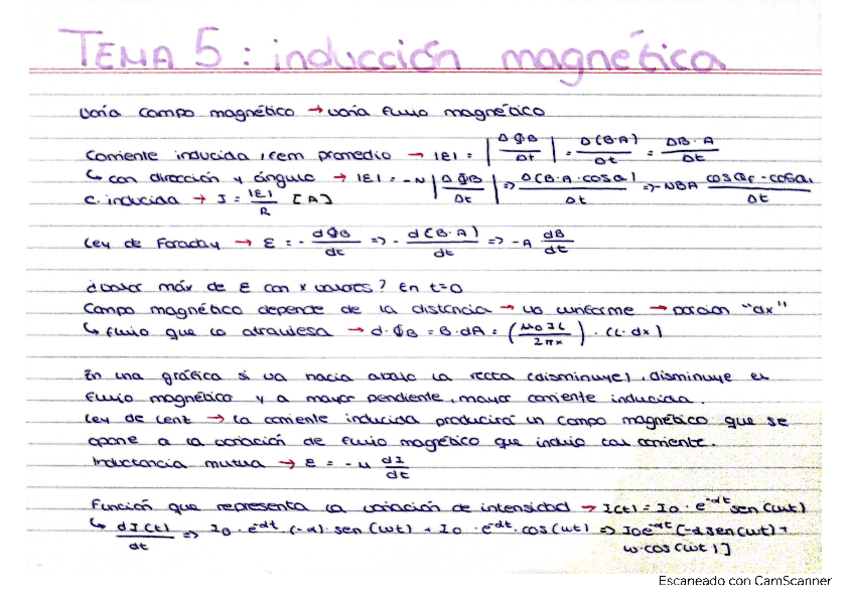 TEMA 5 : inducción magnética
Varía campo magnético → varía flujo magnético
Corriente inducida, fem promedio → |ε| = |ΔΦB/Δt| = Δ(B·A)/Δt = ΔB·A/Δt
↳ con dirección y ángulo → |ε| = -N |ΔΦB/Δt| => Δ(B·A·cosα)/Δt => -NBA cosαf - cosαi/Δt
C. inducida → I = |ε|/R [A]
Ley de Faraday → ε = - dΦB/dt => - d(B·A)/dt => -A dB/dt
¿valor máx de ε con x valores? En t=0
Campo magnético depende de la distancia → no uniforme → porción "dx"
↳ flujo que lo atraviesa → d·ΦB = B·dA = (μ0IL/2πx) · (L·dx)
En una gráfica si va hacia abajo la recta (disminuye), disminuye el
flujo magnético y a mayor pendiente, mayor corriente inducida.
Ley de Lenz → la corriente inducida producirá un campo magnético que se
opone a la variación de flujo magnético que indujo tal corriente.
Inductancia mutua → ε = -M dI/dt
Función que representa la variación de intensidad → I(t) = I0 · e^-αt sen(ωt)
↳ dI(t)/dt => I0 · e^-αt · (-α) · sen(ωt) + I0 · e^-αt · cos(ωt) => I0e^-αt [-α sen(ωt) +
ω·cos(ωt)]
Escaneado con CamScanner